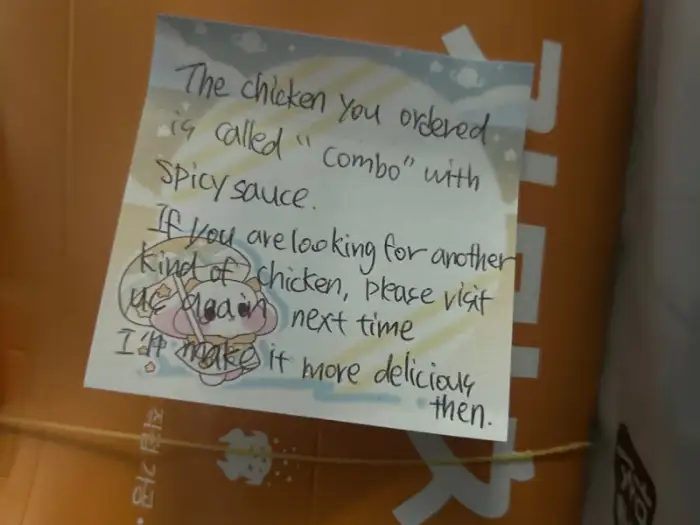 The chicken you ordered
is called "combo" with
spicy sauce.
If you are looking for another
kind of chicken, please visit
us again next time
I'll make it more delicious
then.